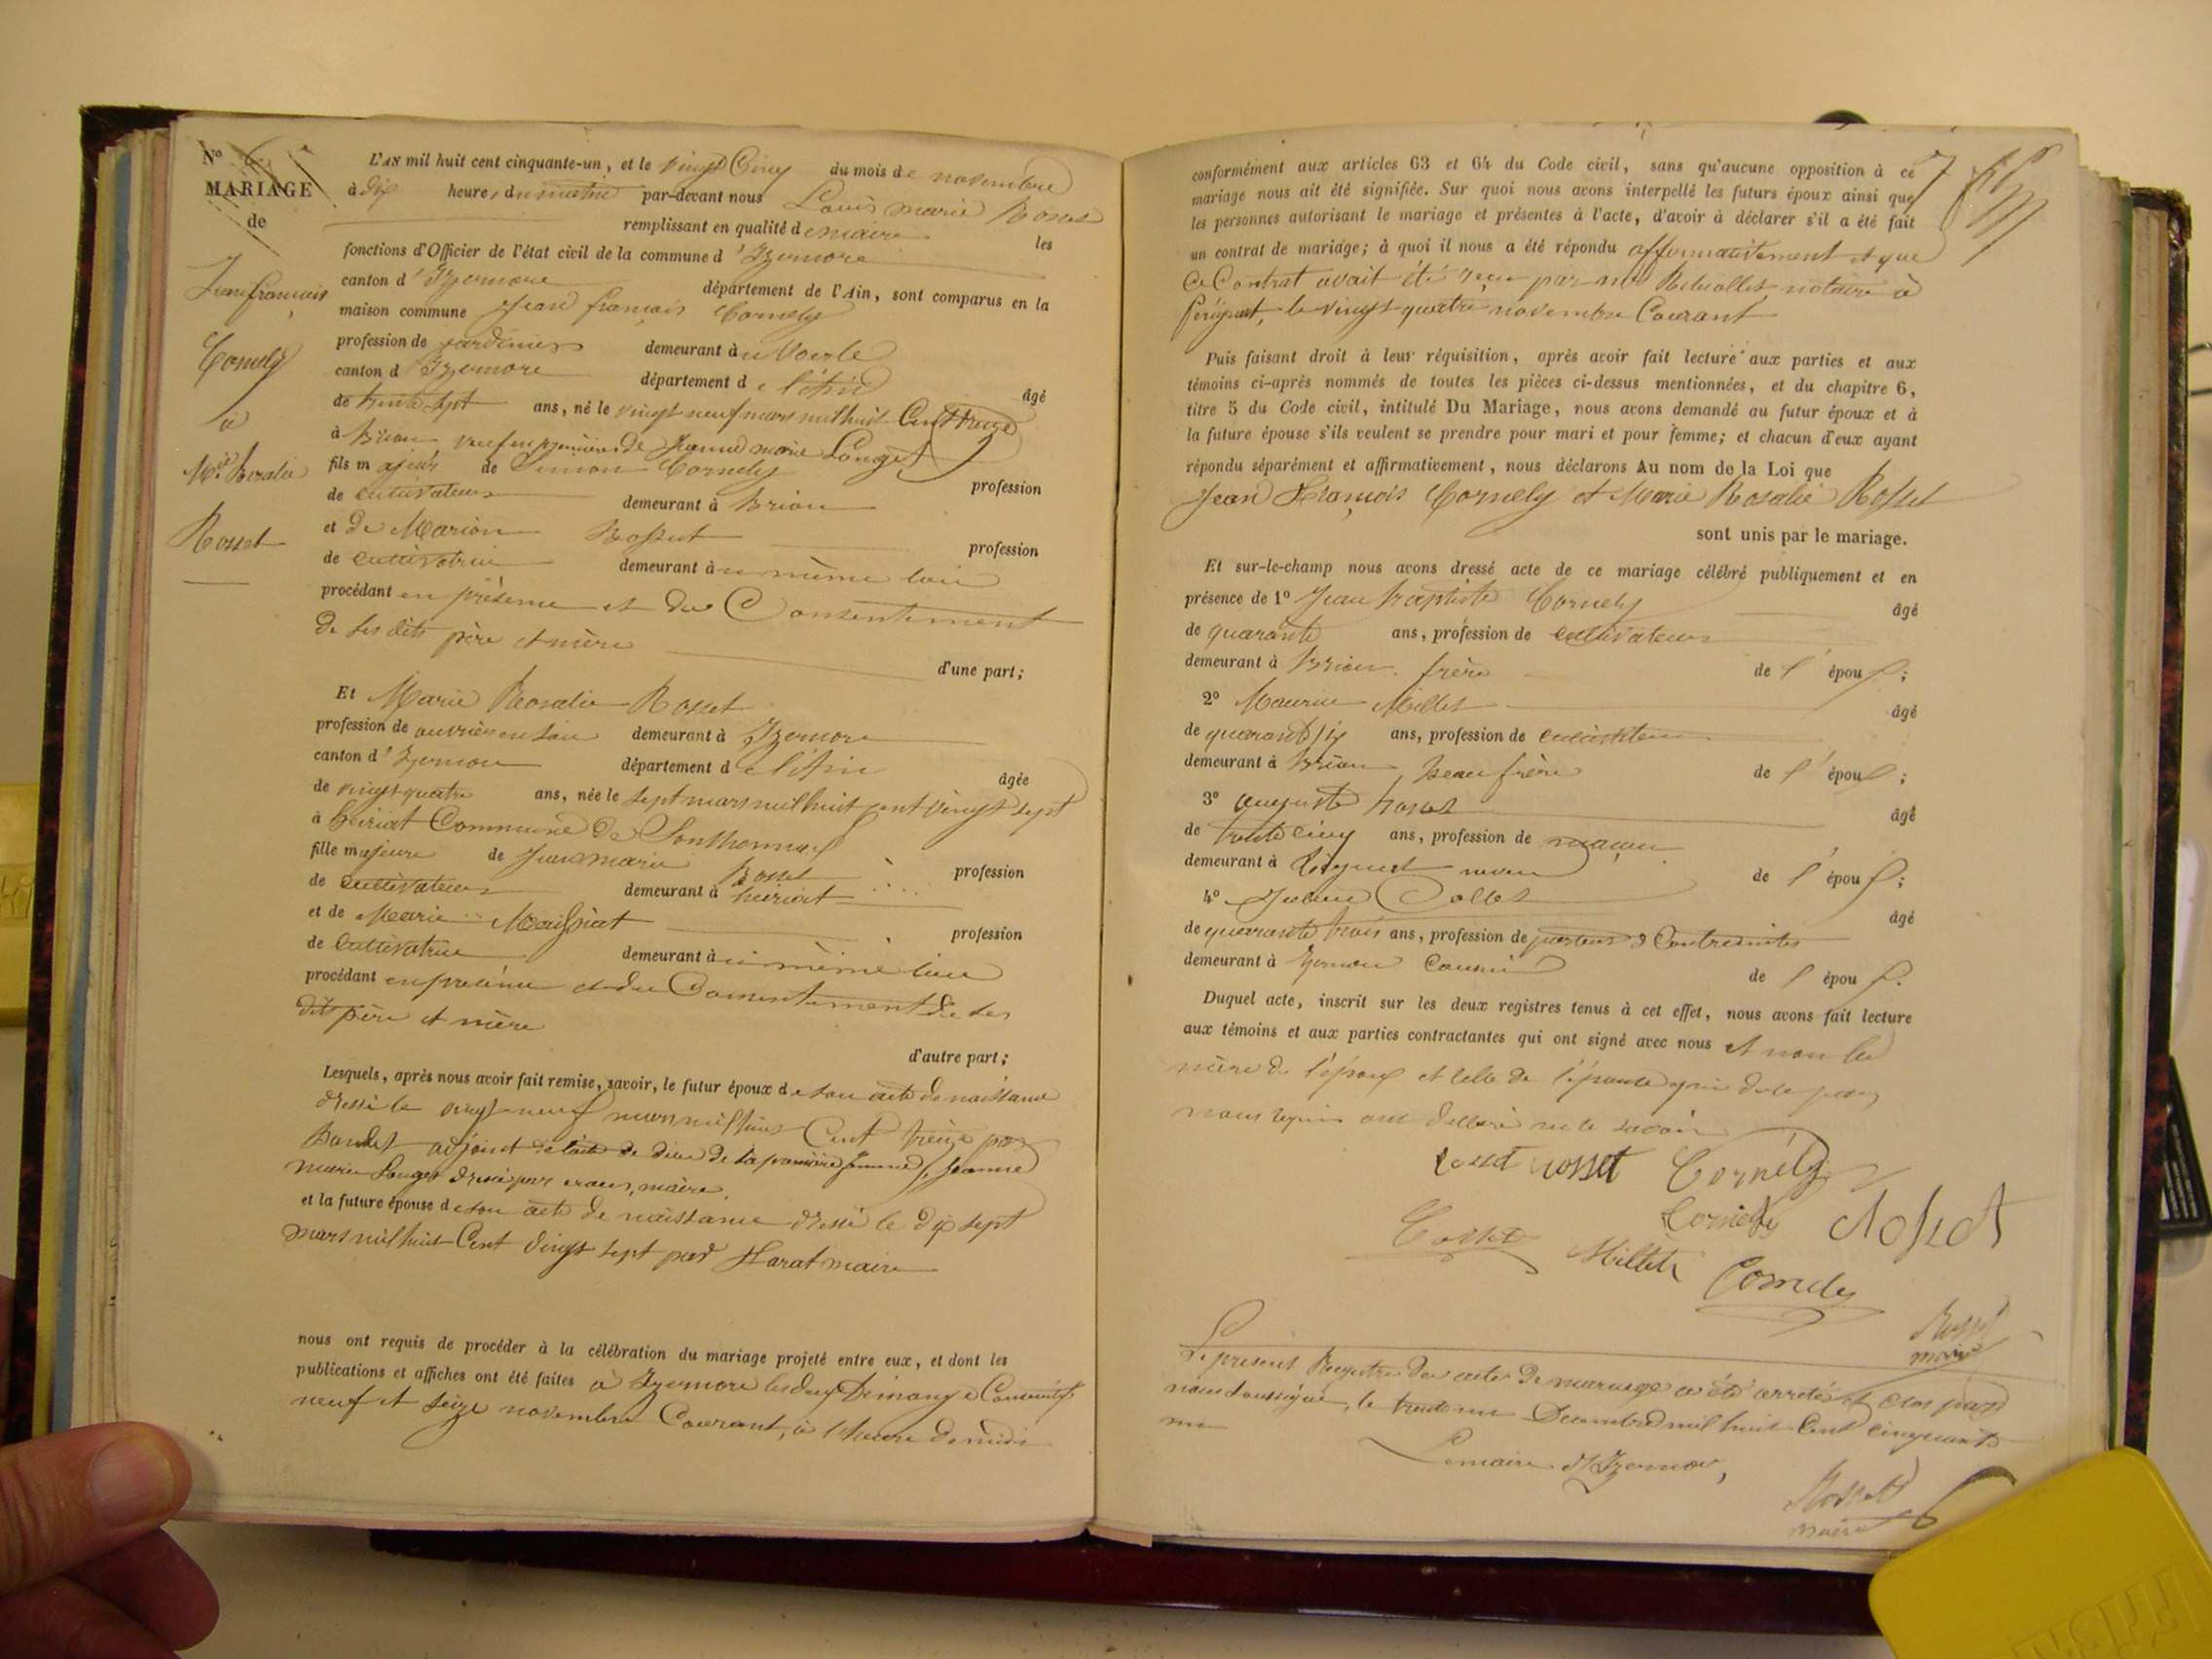 N°
MARIAGE
de
Jean françois
Cornely
à
Mie Rosalie
Rosset
L'AN mil huit cent cinquante-un, et le vingt Cinq du mois de novembre
à dix heures du matin par-devant nous Louis marie Rosset
remplissant en qualité de maire les
fonctions d'Officier de l'état civil de la commune d'Izernore
canton d'Izernore département de l'Ain, sont comparus en la
maison commune Jean françois Cornely
profession de jardinier demeurant à
canton d'Izernore département de l'Ain âgé
de trente sept ans, né le vingt neuf mars mil huit Cent treize
à Brion veuf en premières de Jeanne marie Longet
fils majeur de Simon Cornely profession
de cultivateur demeurant à Brion
et de Marion profession
de cultivatrice demeurant à même lieu
procédant en présence et du Consentement
de ses dits père et mère
d'une part;
Et Marie Rosalie Rosset
profession de ouvrière en soie demeurant à Izernore
canton d'Izernore département de l'Ain âgée
de vingt quatre ans, née le sept mars mil huit cent vingt sept
à heiriat Commune de Sonthonnax
fille majeure de Jean marie Rosset profession
de cultivateur demeurant à heiriat
et de Marie Maissiat profession
de Cultivatrice demeurant à même lieu
procédant en présence et du Consentement de ses
dits père et mère
d'autre part;
Lesquels, après nous avoir fait remise, savoir, le futur époux de son acte de naissance
dressé le vingt neuf mars mil huit Cent treize par
adjoint de décè de sa première femme Jeanne
marie Longet dressé par maire.
et la future épouse de son acte de naissance dressé le dix sept
mars mil huit Cent vingt sept par maire
nous ont requis de procéder à la célébration du mariage projeté entre eux, et dont les
publications et affiches ont été faites à Izernore les deux Dimanches Consécutifs
neuf et seize novembre Courant, à l'heure de midi
7
conformément aux articles 63 et 64 du Code civil, sans qu'aucune opposition à ce
mariage nous ait été signifiée. Sur quoi nous avons interpellé les futurs époux ainsi que
les personnes autorisant le mariage et présentes à l'acte, d'avoir à déclarer s'il a été fait
un contrat de mariage; à quoi il nous a été répondu affirmativement et que
Ce Contrat avait été reçu par notaire à
le vingt quatre novembre Courant
Puis faisant droit à leur réquisition, après avoir fait lecture aux parties et aux
témoins ci-après nommés de toutes les pièces ci-dessus mentionnées, et du chapitre 6,
titre 5 du Code civil, intitulé Du Mariage, nous avons demandé au futur époux et à
la future épouse s'ils veulent se prendre pour mari et pour femme; et chacun d'eux ayant
répondu séparément et affirmativement, nous déclarons Au nom de la Loi que
Jean François Cornely et Marie Rosalie Rosset
sont unis par le mariage.
Et sur-le-champ nous avons dressé acte de ce mariage célébré publiquement et en
présence de 1° Jean baptiste Cornely âgé
de quarante ans, profession de cultivateur
demeurant à Brion frère de l'époux;
2° Maurice Millet âgé
de quarante six ans, profession de cultivateur
demeurant à Brion beau frère de l'époux;
3° auguste âgé
de trente cinq ans, profession de maçon
demeurant à neveu de l'époux;
4° Collet âgé
de quarante trois ans, profession de porteur de Contraintes
demeurant à Izernore Cousin de l'époux.
Duquel acte, inscrit sur les deux registres tenus à cet effet, nous avons fait lecture
aux témoins et aux parties contractantes qui ont signé avec nous et non la
mère de l'époux et celle de l'épouse qui de ce par
nous requis ont déclaré ne le savoir
rosset Cornély
Cornely Rosset
Collet Millet Cornely
Rosset
maire
Le présent Registre des actes de mariage a été arrêté et clos par
nous soussigné, le trente un Décembre mil huit Cent cinquante
un
Le maire d'Izernore,
Rosset
maire